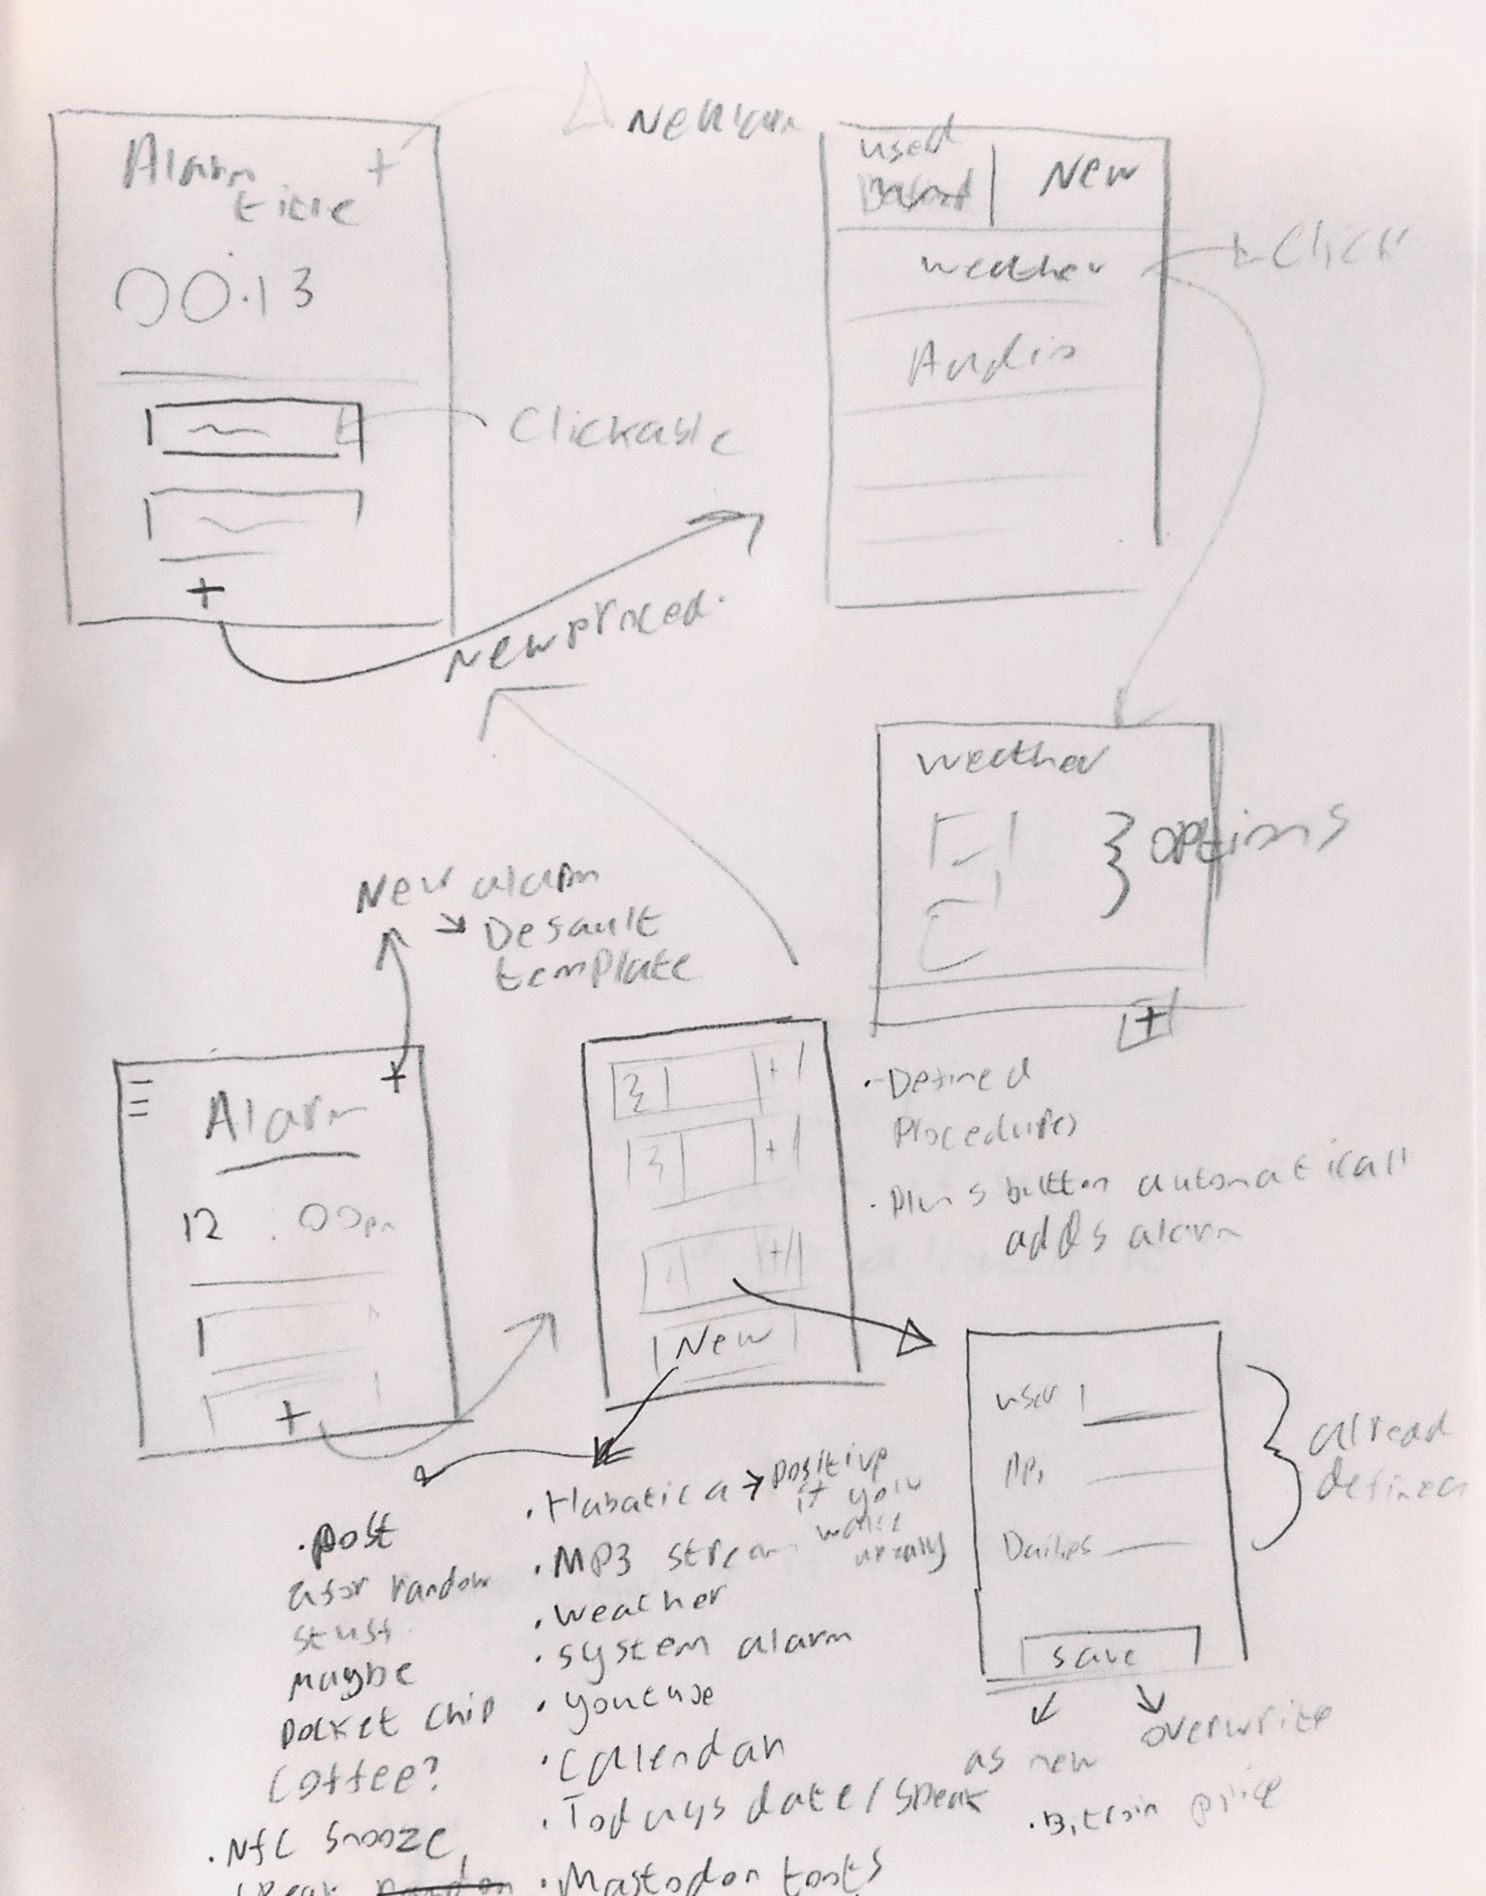 Alarm
title
+
00:13
+
New alarm
Clickable
New proced.
used
New
weather
Audio
Click
weather
options
+
New alarm
Default
template
+
Alarm
12 : 00pm
+
+
+
+
New
• Defined
Procedures
• Plus button automaticall
adds alarm
user
API
Dailies
save
alread
defined
as new
overwrite
• Bitcoin price
• Post
for random
stuff
maybe
Pocket Chip
Coffee?
• NFC Snooze
• Habatica → positive
if you
wake
• MP3 stream
• weather
• system alarm
• youtube
• Calendar
• Todays date / speak
• Mastodon toots